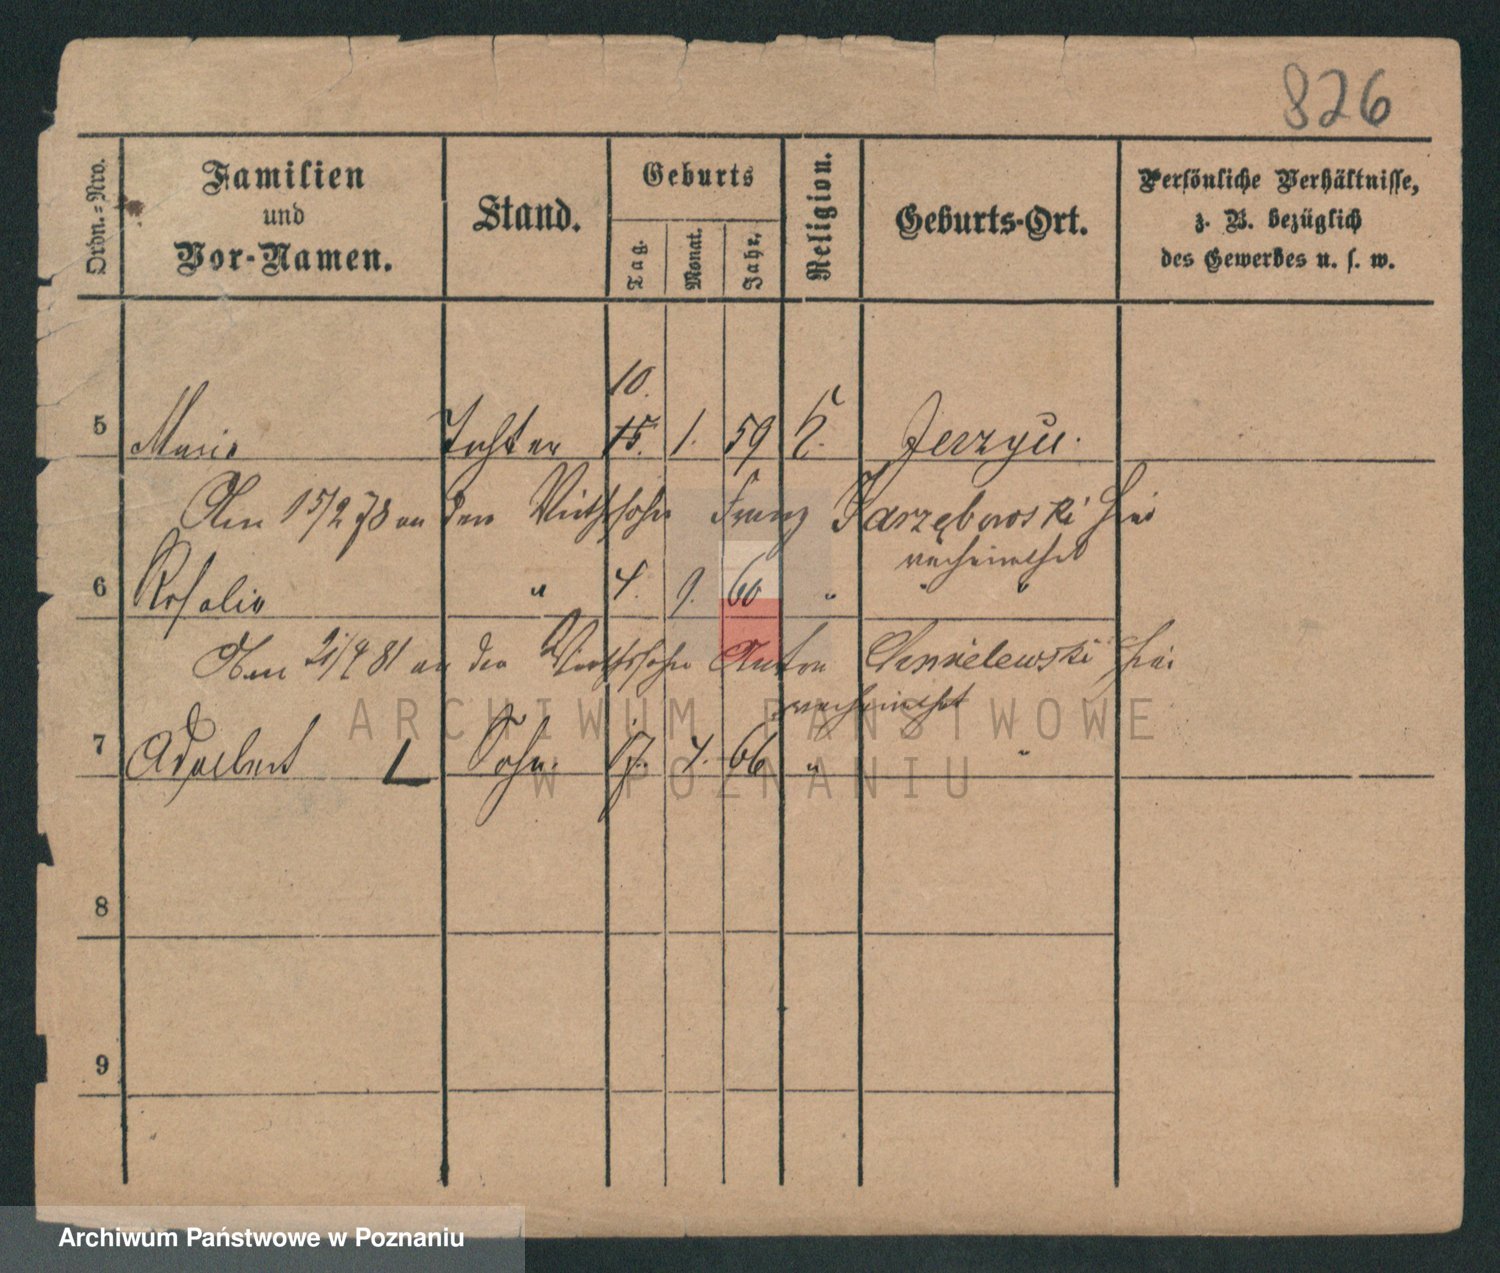 826
Ordn.-Nro.
Familien
und
Vor-Namen.
Stand.
Geburts
Tag.
Monat.
Jahr.
Religion.
Geburts-Ort.
Persönliche Verhältnisse,
z. B. bezüglich
des Gewerbes u. s. w.
10.
5 Marie Tochter 15. 1. 59 K. Jerzyce.
Am 15/2 78 an den Wirthssohn Franz Jarzębowski hier
verheirathet
6 Rosalie " 4. 9. 60 " "
Am 21/ 81 an den Wirthssohn Anton hier
verheirathet
7 Adalbert L Sohn. 17. 4. 66 " "
8
9
ARCHIWUM PAŃSTWOWE
W POZNANIU
Archiwum Państwowe w Poznaniu